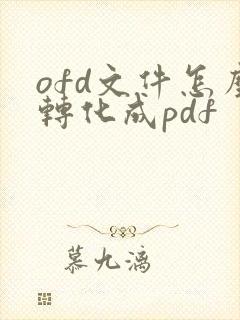 ofd文件怎麼
轉化成pdf
慕九漓